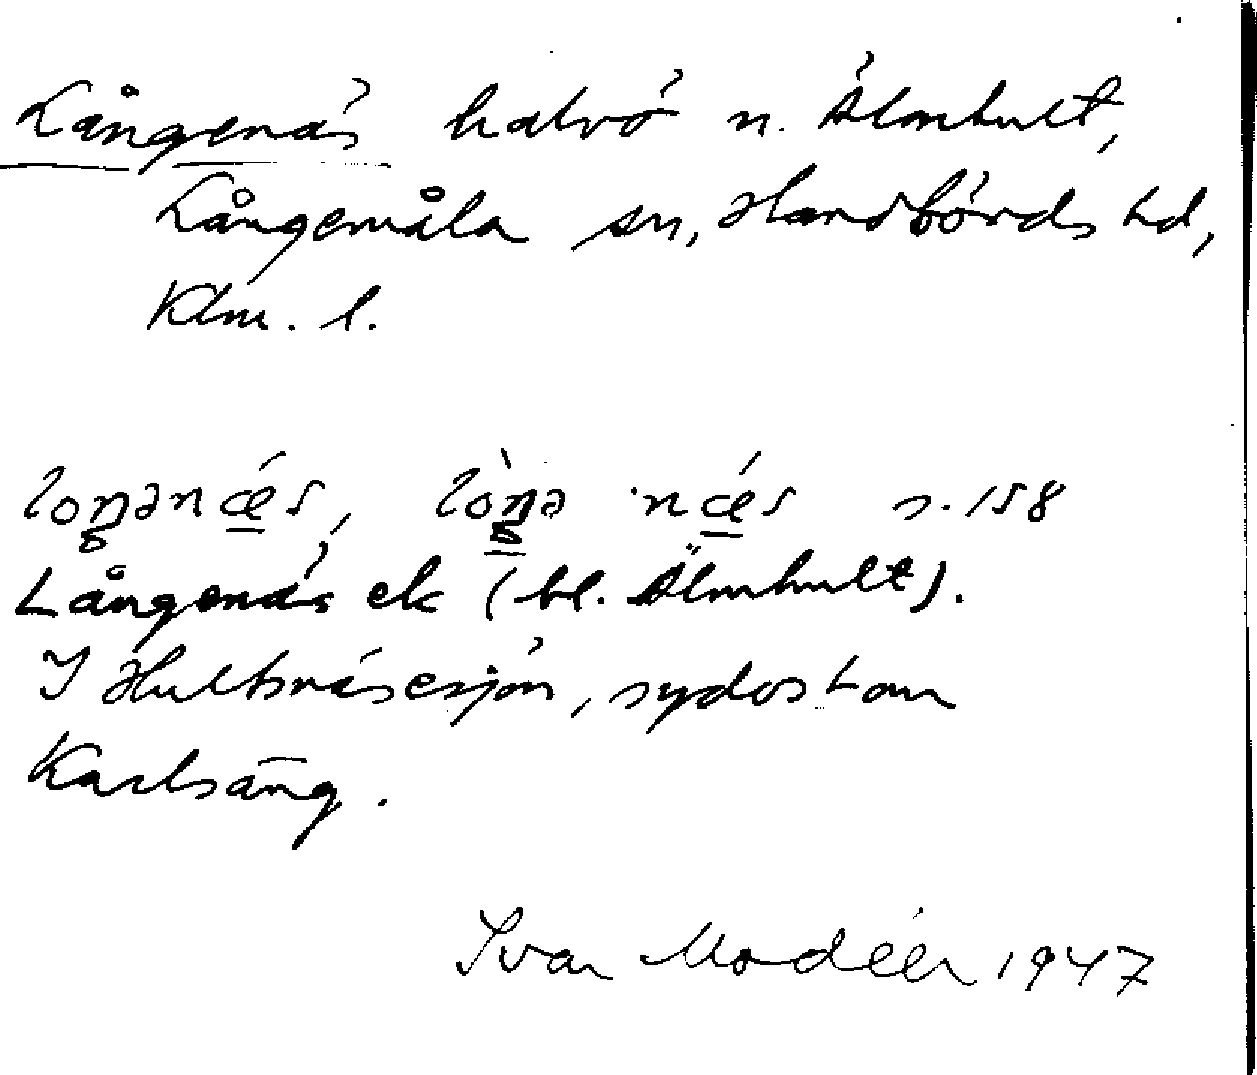 Långenäs halvö n. Älmhult,
Långemåla sn, Handbörds hd,
Klm. l.
loŋənæ̲s, lòŋə næ̲s s. 158
Långenäs ek (bl. Älmhult).
I Hultsnäsesjön, sydost om
Karlsäng.
Ivar Modéer 1947